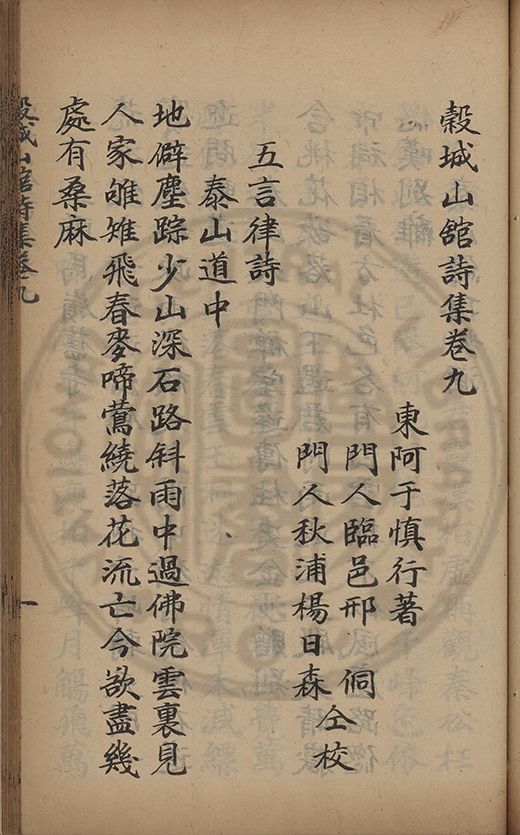 榖城山舘詩集卷九
東阿于慎行著
門人臨邑邢侗
門人秋浦楊日森
仝校
五言律詩
泰山道中
地僻塵踪少山深石路斜雨中過佛院雲裏見
人家雊雉飛春麥啼鶯繞落花流亡今欲盡幾
處有桑麻
榖城山舘詩集卷九
一